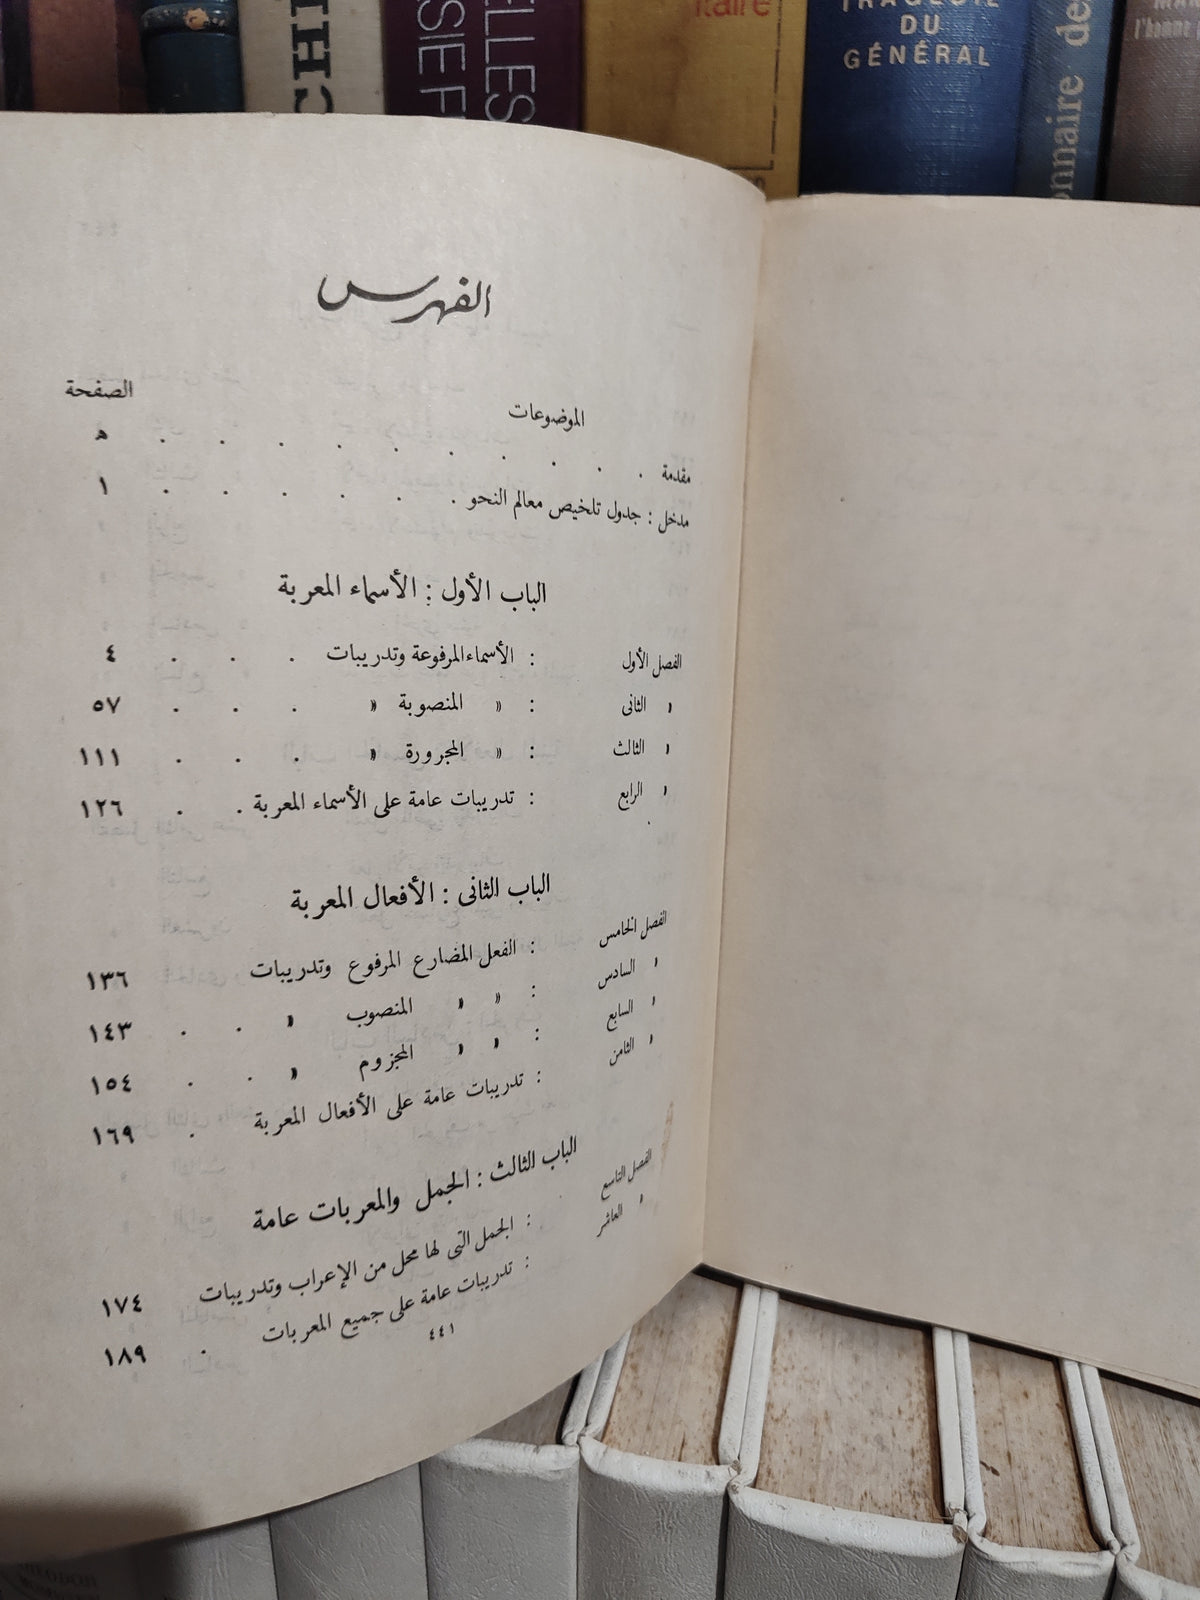 CHI
ELLES
SIE F
itaire
TRAGÉDIE
DU
GÉNÉRAL
onnaire des
l'homme
الفهرس
الموضوعات الصفحة
مقدمة . . . . . . . . . ه
مدخل : جدول تلخيص معالم النحو . . . . . . ١
الباب الأول : الأسماء المعربة
الفصل الأول : الأسماء المرفوعة وتدريبات . . . ٤
» الثانى : » المنصوبة » . . . ٥٧
» الثالث : » المجرورة » . . . ١١١
» الرابع : تدريبات عامة على الأسماء المعربة . . ١٢٦
الباب الثانى : الأفعال المعربة
الفصل الخامس : الفعل المضارع المرفوع وتدريبات ١٣٦
» السادس : » » المنصوب » . . ١٤٣
» السابع : » » المجزوم » . . ١٥٤
» الثامن : تدريبات عامة على الأفعال المعربة . ١٦٩
الباب الثالث : الجمل والمعربات عامة
الفصل التاسع : الجمل التى لها محل من الإعراب وتدريبات ١٧٤
» العاشر : تدريبات عامة على جميع المعربات . ١٨٩
٤٤١